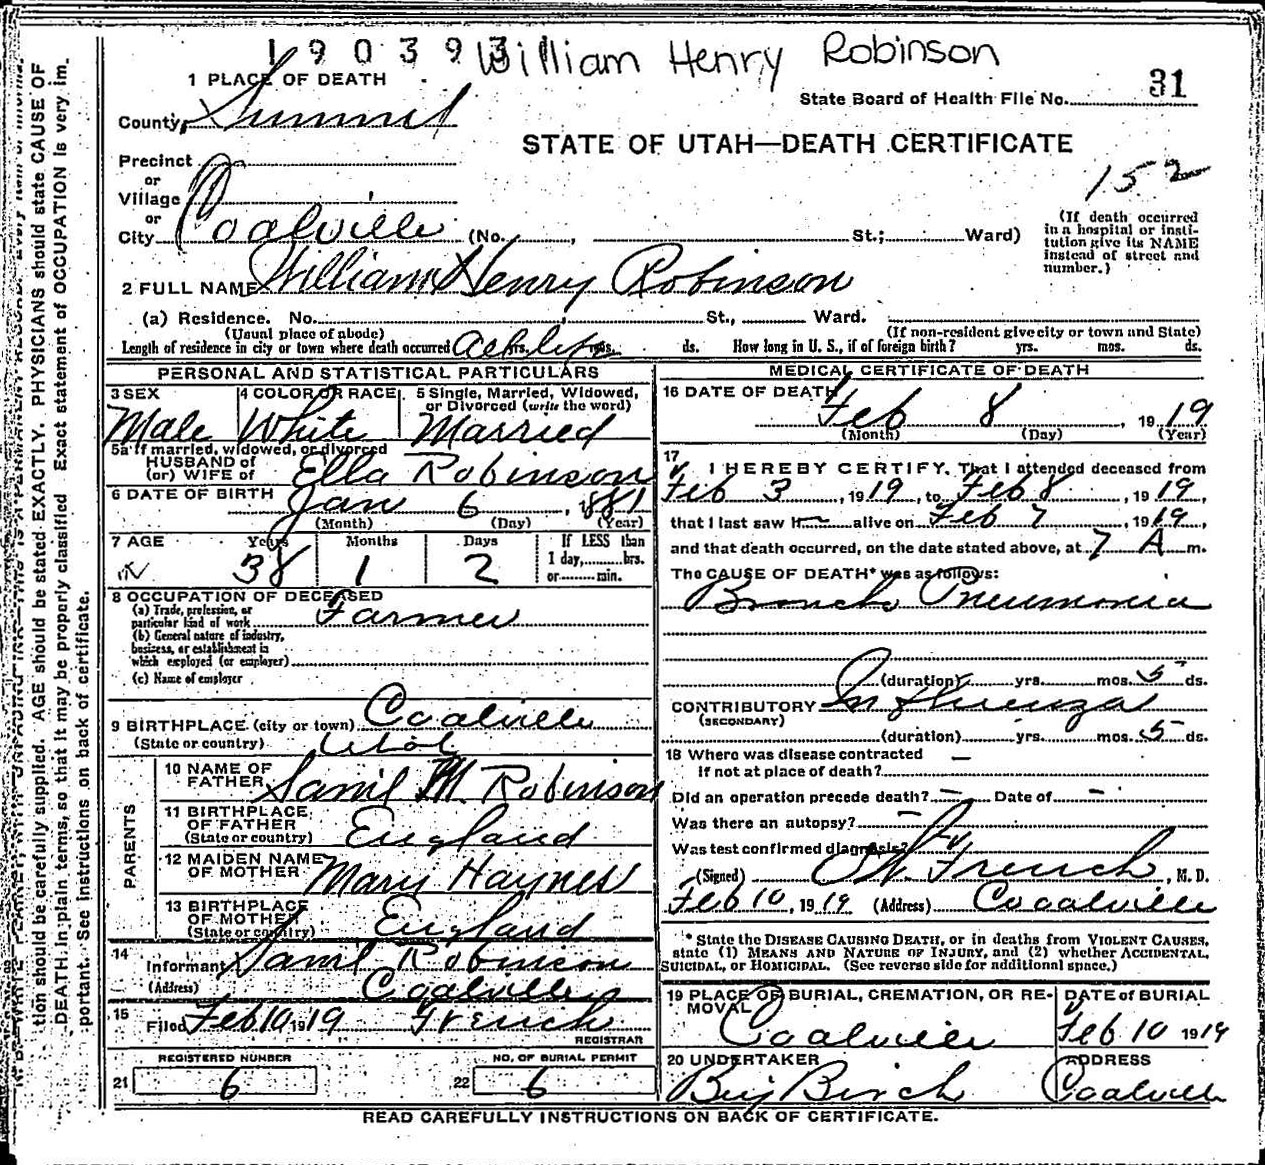 190393 William Henry Robinson
1 PLACE OF DEATH
31
State Board of Health File No.
County, Summit
STATE OF UTAH—DEATH CERTIFICATE
Precinct
or
152
Village
or
City Coalville (No. , St.; Ward)
(If death occurred
in a hospital or insti-
tution give its NAME
instead of street and
number.)
2 FULL NAME William Henry Robinson
(a) Residence. No. , St., Ward.
(Usual place of abode) (If non-resident give city or town and State)
Length of residence in city or town where death occurred All life yrs. mos. ds. How long in U. S., if of foreign birth? yrs. mos. ds.
PERSONAL AND STATISTICAL PARTICULARS
3 SEX
Male
4 COLOR OR RACE
White
5 Single, Married, Widowed,
or Divorced (write the word)
Married
5a If married, widowed, or divorced
HUSBAND of
(or) WIFE of Ella Robinson
6 DATE OF BIRTH Jan 6, 1881
(Month) (Day) (Year)
7 AGE Years Months Days If LESS than
1 day, hrs.
or min.
38 1 2
8 OCCUPATION OF DECEASED
(a) Trade, profession, or
particular kind of work Farmer
(b) General nature of industry,
business, or establishment in
which employed (or employer)
(c) Name of employer
9 BIRTHPLACE (city or town) Coalville
(State or country) Utah
PARENTS
10 NAME OF
FATHER Saml M Robinson
11 BIRTHPLACE
OF FATHER
(State or country) England
12 MAIDEN NAME
OF MOTHER Mary Haynes
13 BIRTHPLACE
OF MOTHER
(State or country) England
14
Informant Saml Robinson
(Address) Coalville
15
Filed Feb 10 1919 French
REGISTRAR
REGISTERED NUMBER NO. OF BURIAL PERMIT
21 6 22 6
MEDICAL CERTIFICATE OF DEATH
16 DATE OF DEATH
Feb 8, 1919
(Month) (Day) (Year)
17
I HEREBY CERTIFY, That I attended deceased from
Feb 3, 1919, to Feb 8, 1919,
that I last saw h alive on Feb 7, 1919,
and that death occurred, on the date stated above, at 7 A m.
The CAUSE OF DEATH* was as follows:
Broncho Pneumonia
(duration) yrs. mos. 5 ds.
CONTRIBUTORY Influenza
(SECONDARY)
(duration) yrs. mos. 5 ds.
18 Where was disease contracted
if not at place of death? —
Did an operation precede death? — Date of —
Was there an autopsy? —
Was test confirmed diagnosis?
(Signed) French, M. D.
Feb 10, 1919 (Address) Coalville
* State the DISEASE CAUSING DEATH, or in deaths from VIOLENT CAUSES,
state (1) MEANS AND NATURE OF INJURY, and (2) whether ACCIDENTAL,
SUICIDAL, or HOMICIDAL. (See reverse side for additional space.)
19 PLACE OF BURIAL, CREMATION, OR RE-
MOVAL
Coalville
DATE of BURIAL
Feb 10 1919
20 UNDERTAKER
Benj Birch
ADDRESS
Coalville
READ CAREFULLY INSTRUCTIONS ON BACK OF CERTIFICATE.
tion should be carefully supplied. AGE should be stated EXACTLY. PHYSICIANS should state CAUSE OF
DEATH in plain terms, so that it may be properly classified. Exact statement of OCCUPATION is very im-
portant. See instructions on back of certificate.